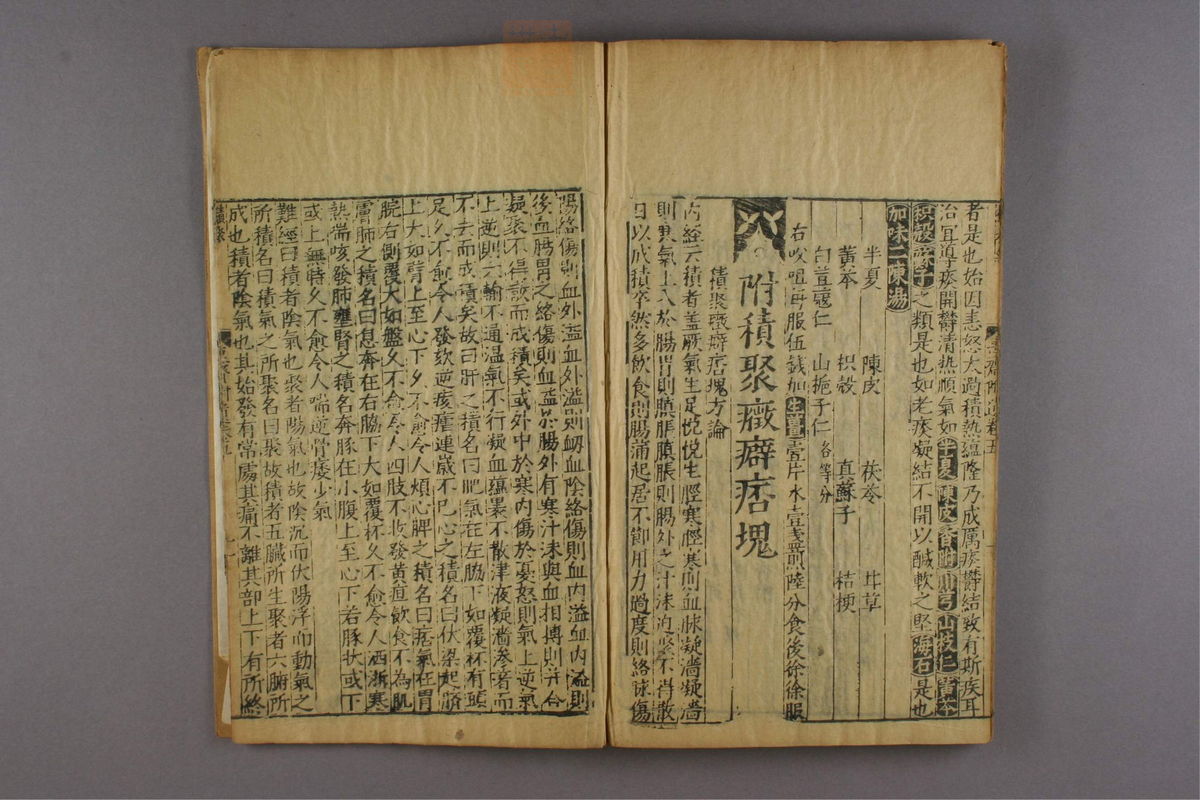 者是也始因恚怒太過積熱蘊隆乃成厲痰鬱結致有斯疾耳
治宜導痰開鬱清熱順氣如半夏陳皮香附川芎山梔仁黃芩
枳殼蘇子之類是也如老痰凝結不開以鹹軟之堅海石是也
加味二陳湯
半夏 陳皮 茯苓 甘草
黃芩 枳殼 真蘇子 桔梗
白荳蔻仁 山梔子仁各等分
右㕮咀每服伍錢加生薑壹片水壹盞煎陸分食後徐徐服
附積聚癥癖痞塊
積聚癥癖痞塊方論
內經云積者蓋厥氣生足悗悗生脛寒脛寒則血脉凝濇凝濇
則寒氣上入於腸胃則䐜脹䐜脹則腸外之汁沫迫聚不得散
日以成積卒然多飲食則腸滿起居不節用力過度則絡脉傷
陽絡傷則血外溢血外溢則衂血陰絡傷則血內溢血內溢則
後血腸胃之絡傷則血溢於腸外有寒汁沫與血相摶則并合
凝聚不得散而成積矣或外中於寒內傷於憂怒則氣上逆氣
上逆則六輸不通溫氣不行凝血蘊裹不散津液凝濇滲著而
不去而成積矣故曰肝之積名曰肥氣在左脇下如覆杯有頭
足久不愈令人發欬逆痎瘧連歲不已心之積名曰伏梁起臍
上大如臂上至心下久不愈令人煩心脾之積名曰痞氣在胃
脘右側覆大如盤久不愈令人四肢不收發黃疸飲食不為肌
膚肺之積名曰息奔在右脇下大如覆杯久不愈令人洒淅寒
熱喘咳發肺壅腎之積名奔豚在小腹上至心下若豚狀或下
或上無時久不愈令人喘逆骨痿少氣
難經曰積者陰氣也聚者陽氣也故陰沉而伏陽浮而動氣之
所積名曰積氣之所聚名曰聚故積者五臟所生聚者六腑所
成也積者陰氣也其始發有常處其痛不離其部上下有所終